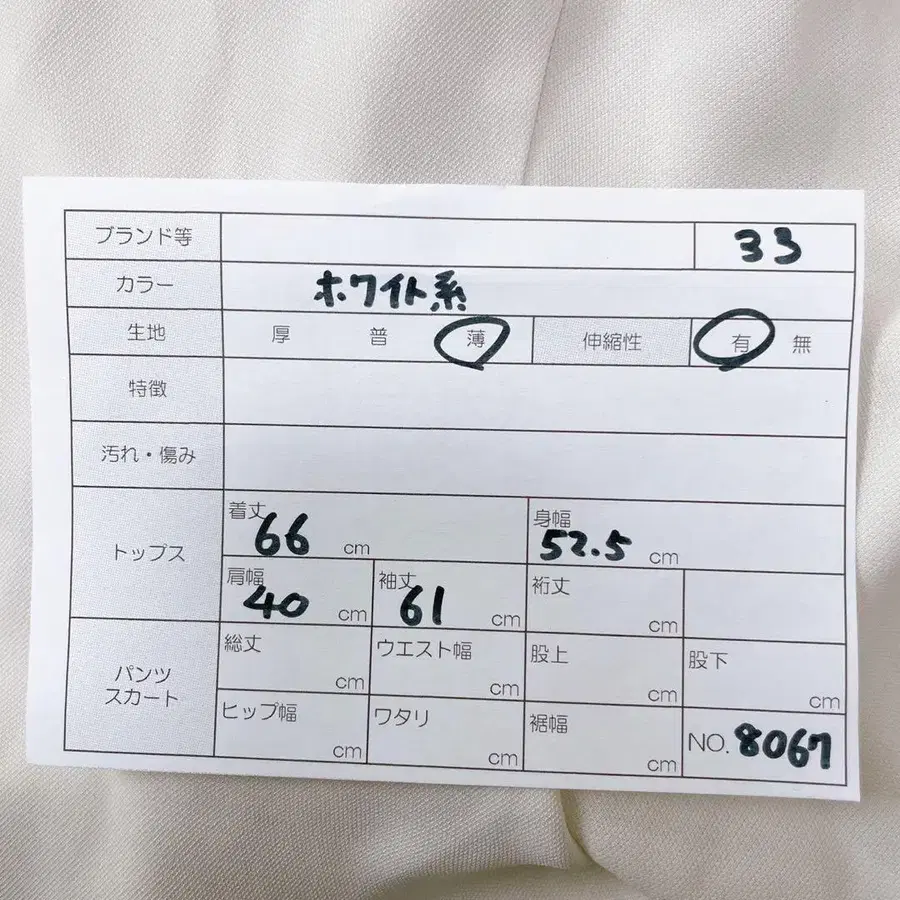 ブランド等 33
カラー ホワイト系
生地 厚 普 薄 伸縮性 有 無
特徴
汚れ・傷み
トップス
着丈 66 cm 身幅 52.5 cm
肩幅 40 cm 袖丈 61 cm 裄丈 cm
パンツ
スカート
総丈 cm ウエスト幅 cm 股上 cm 股下 cm
ヒップ幅 cm ワタリ cm 裾幅 cm NO. 8067